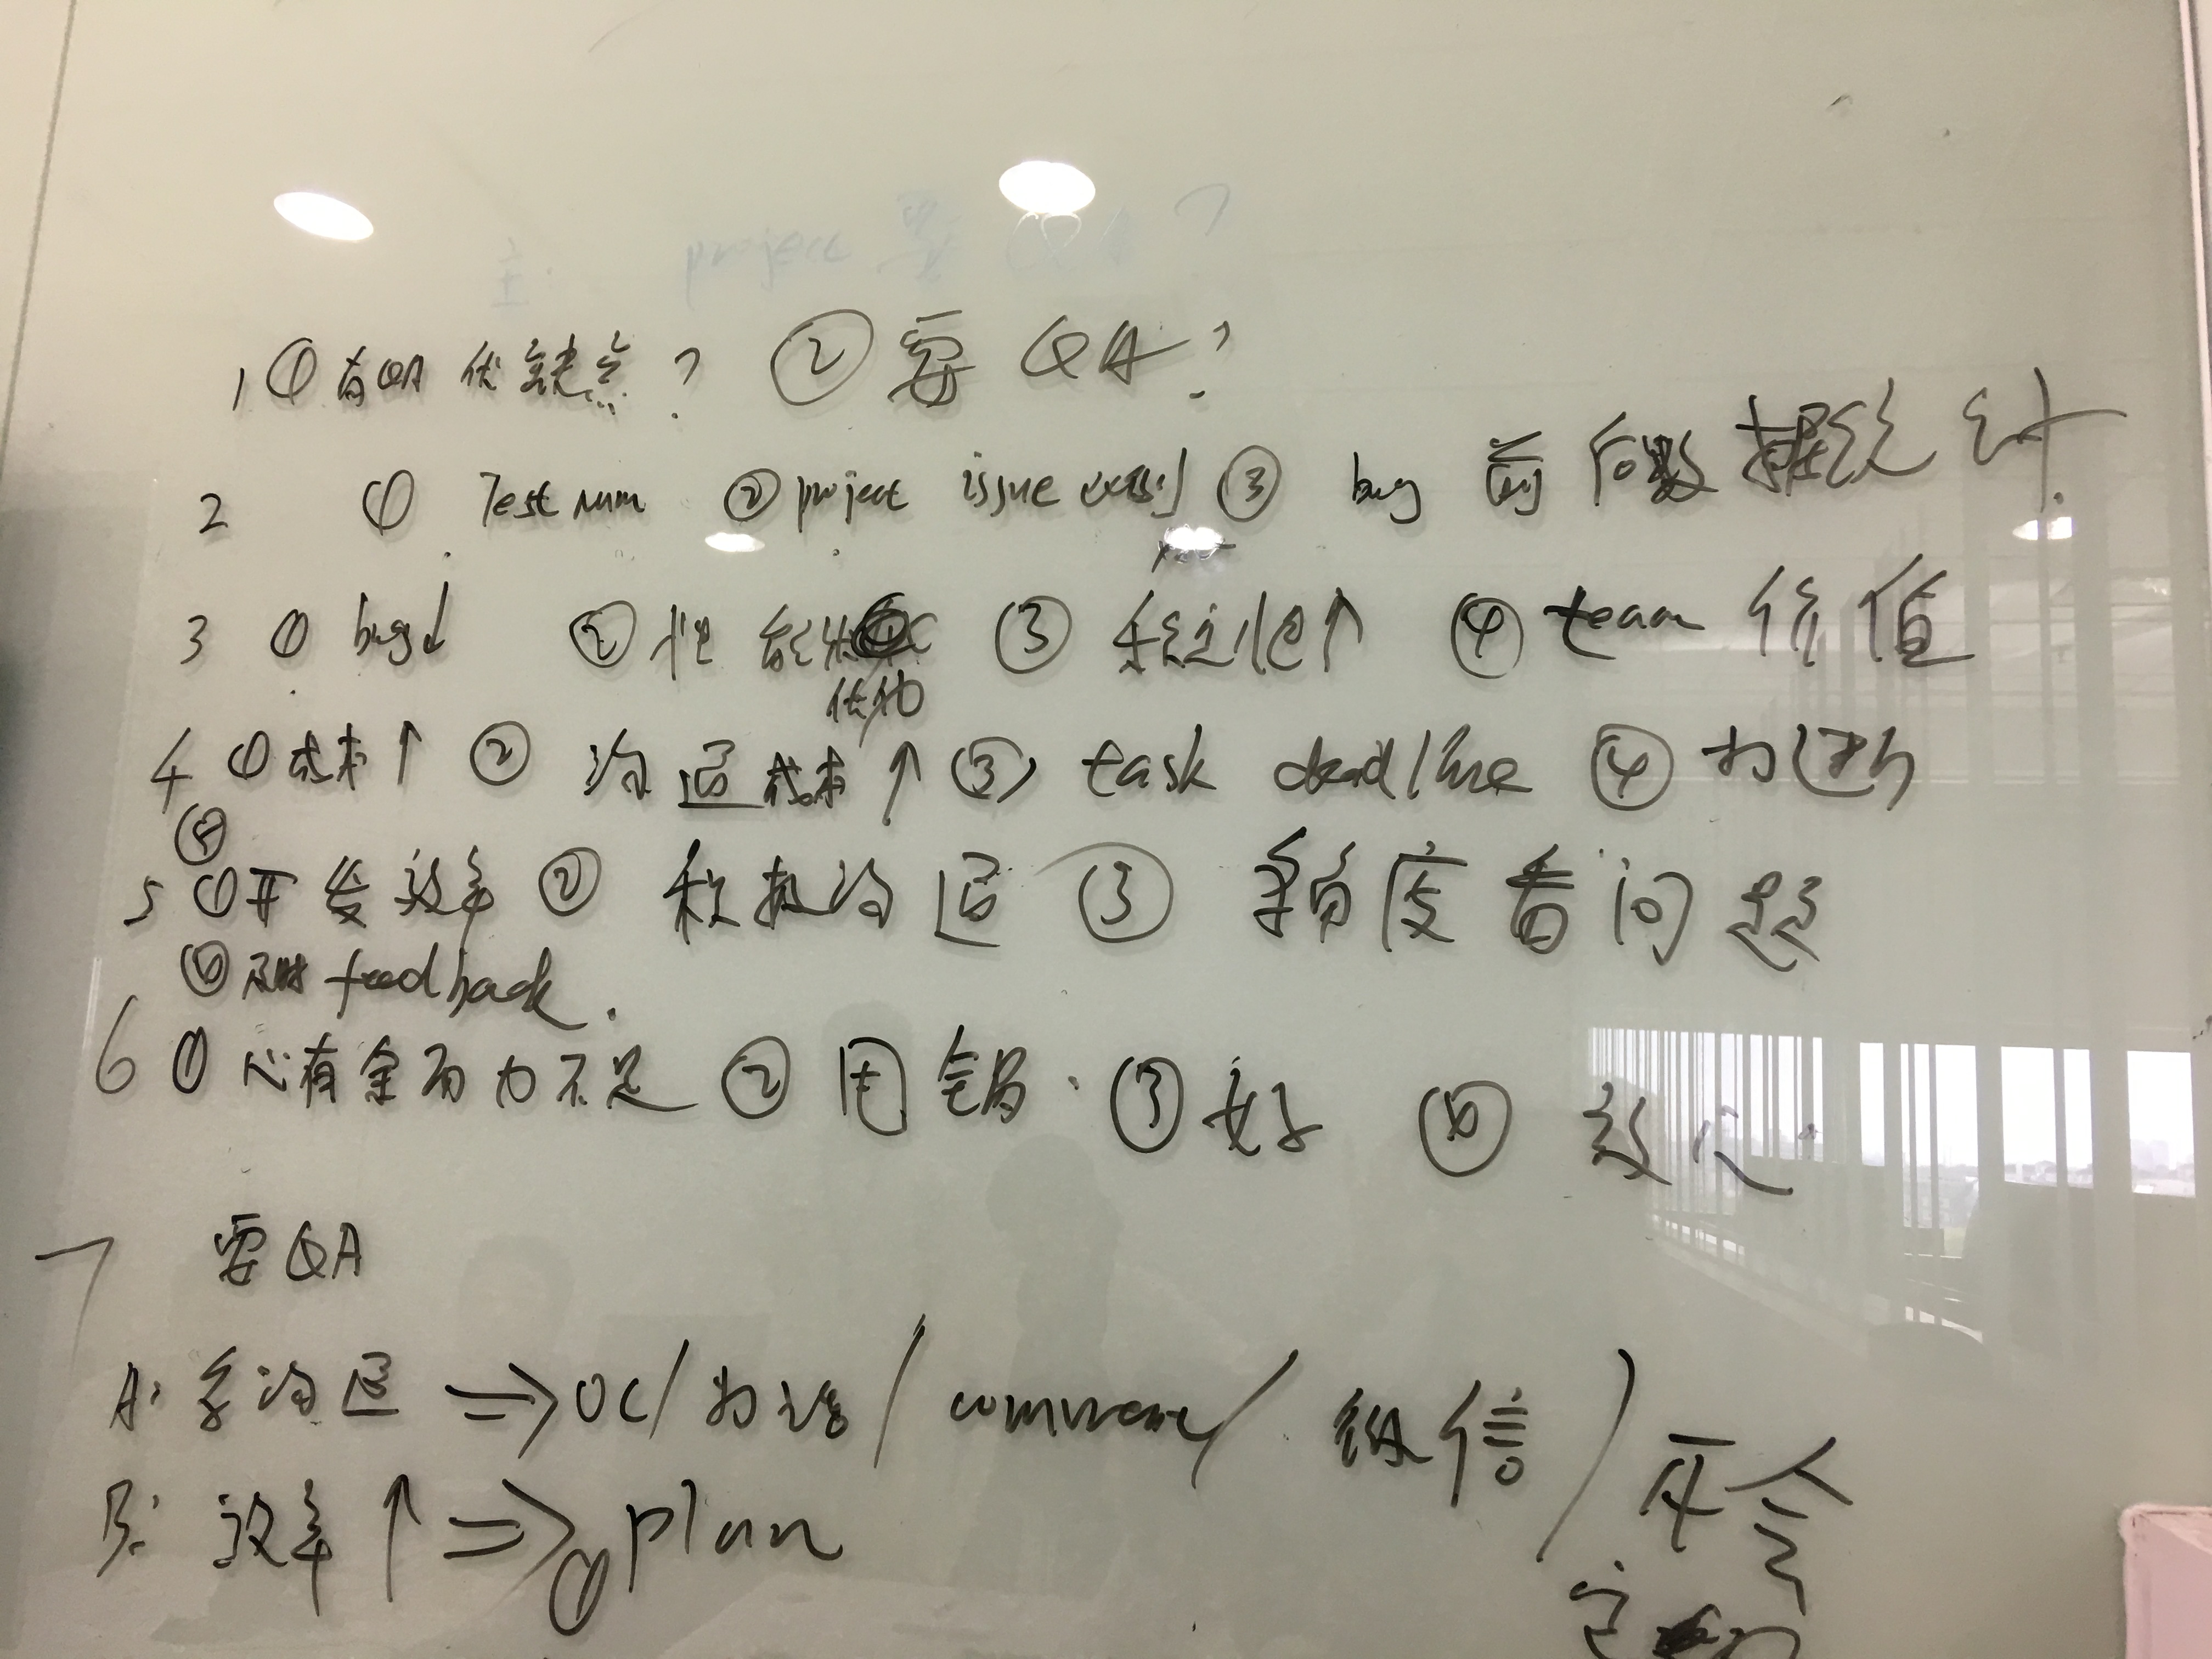 主: project 要QA?
1 ① 有QA 优缺点? ② 要 QA?
2 ① Test num ② project issue 级别 ③ bug 前后数据统计.
3 ① bug↓ ② 性能 优化 ③ 稳定性↑ ④ team 价值
4 ① 成本↑ ② 沟通成本↑ ③ task deadline ④ 打断
5 ① 开发效率 ② 积极沟通 ③ 多角度看问题
⑥ 及时 feedback.
6 ① 心有余而力不足 ② 甩锅. ③ 好 ⑥ 放心
7 要QA
A: 多沟通 ⇒ OC/电话/comment/微信/开会
B: 效率↑ ⇒ ① plan